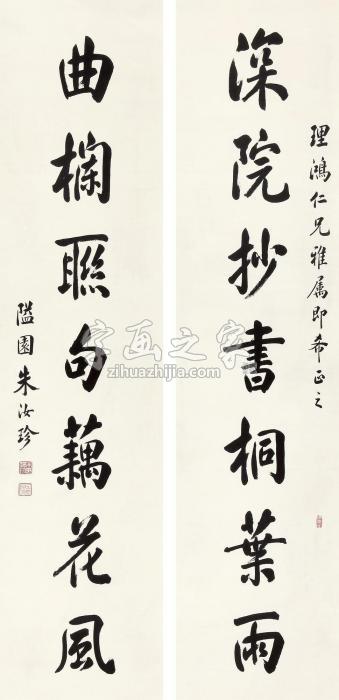 理鴻仁兄雅属即希正之
深院抄書桐葉雨
曲欄聯句藕花風
隘園朱汝珍
字画之家
zihuazhijia.com